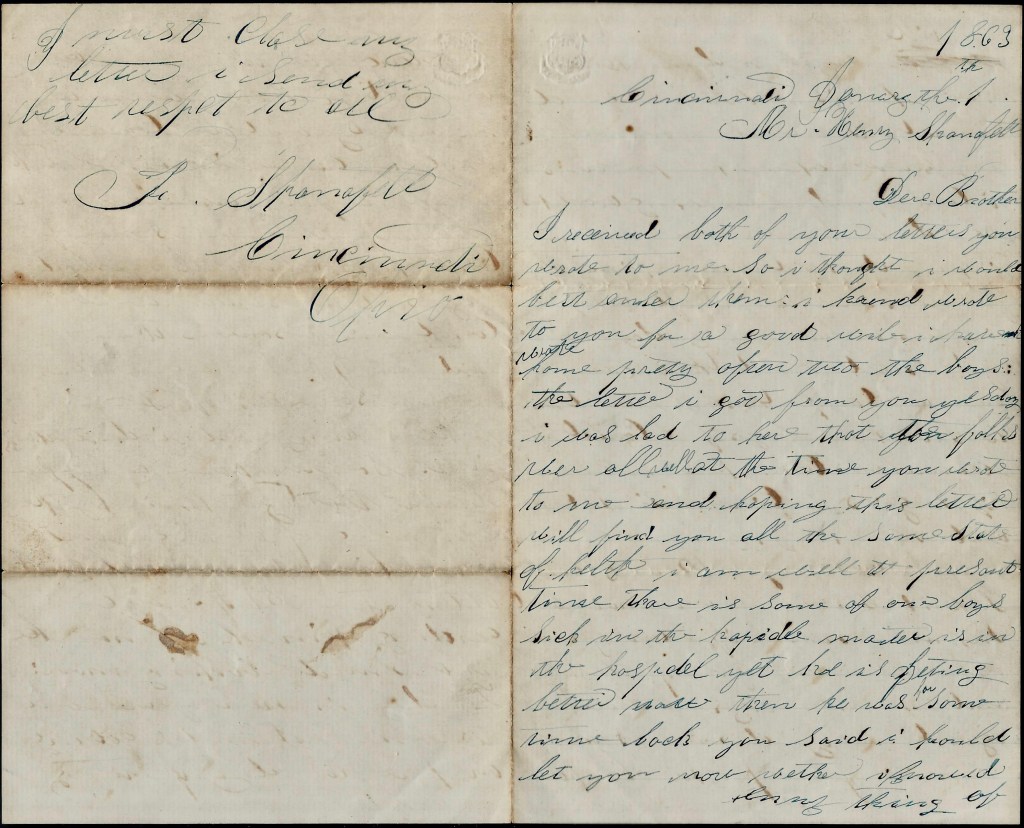 I must close my
letter i send my
best respet to all
Spanaft
Cincinndi
1863
th
Cincinndi 1
Mr. Henry
Dere Brother
I received both of your letters you
wrote to me so i thought i would
best them i wrote
to you for a good i have
wrote
home pretty ofsen to the boys
the letter i got from you yesday
i was lad to here that folks
wer all well at the time you wrote
to me and hoping this letter
will find you all the same state
of helth i am well at present
time thare is some of our boys
sick in the is in
the hospidel yet he is geting
for
better now then he was some
time back you said i should
let you now wether i
thing of